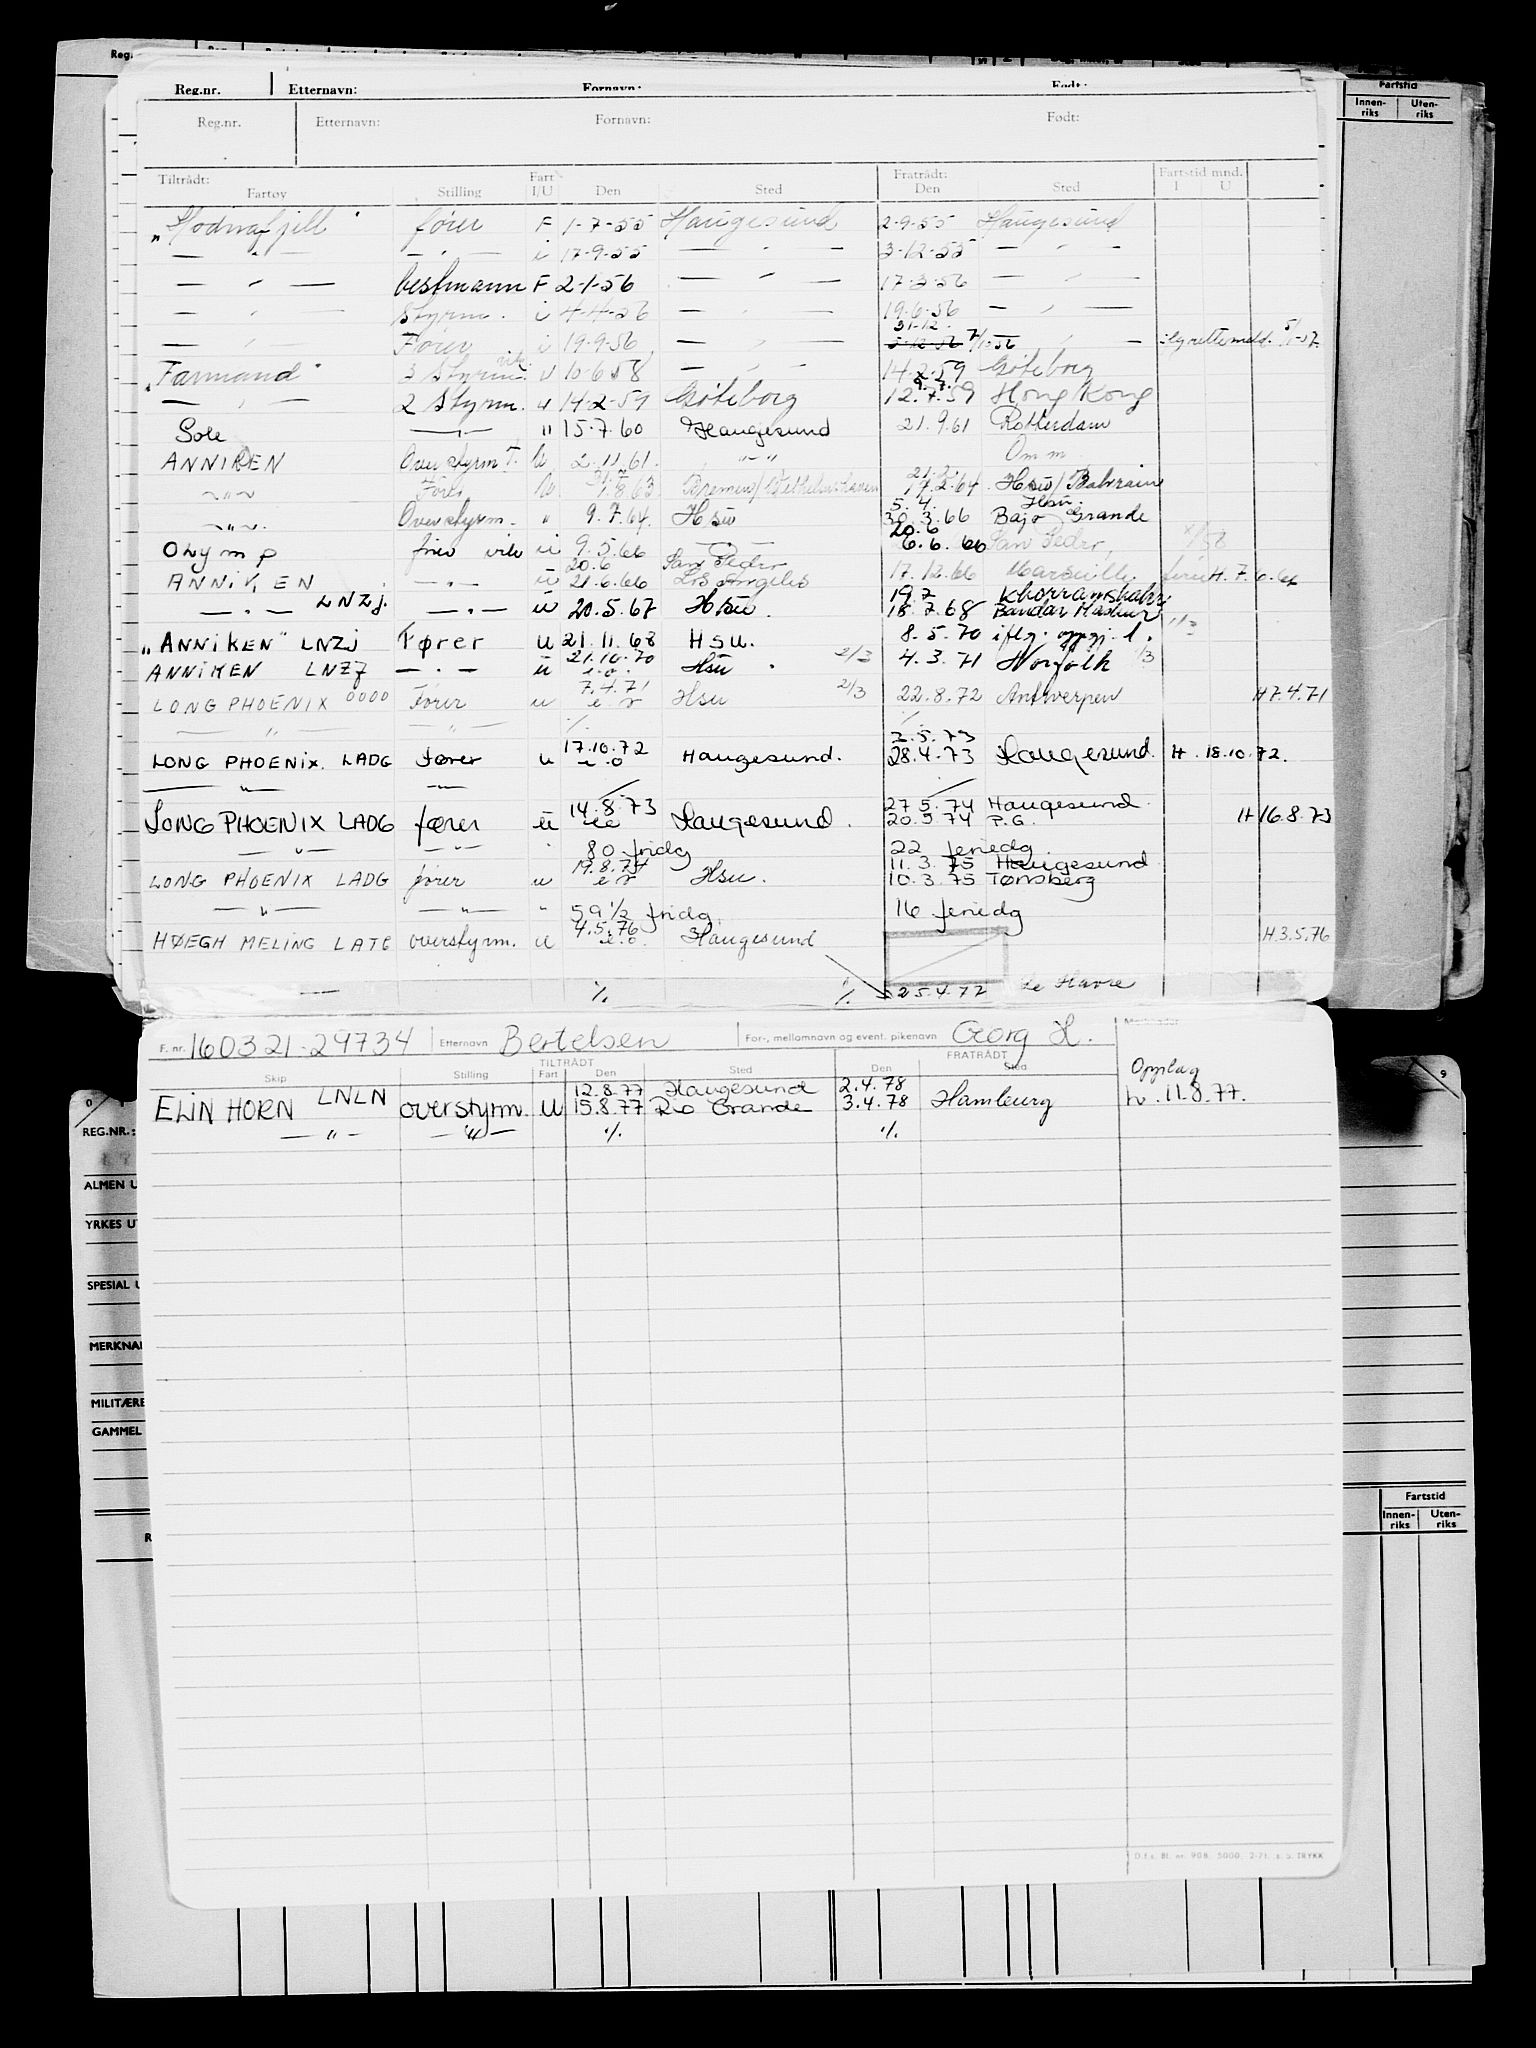 Reg.nr. Etternavn: Fornavn: Født:
Fartstid
Innen-riks Uten-riks
Reg.nr. Etternavn: Fornavn: Født:
Tiltrådt: Fratrådt: Fartstid mnd.
Fartøy Stilling Fart I/U Den Sted Den Sted I U
fører F 1-7-55 Haugesund 2-9-55 Haugesund
— " — — " — i 17-9-55 — " — 3-12-55 — " —
— " — bestmann F 2-1-56 — " — 17-3-56 — " —
— " — Styrm. i 4-4-56 — " — 19-6-56 — " —
31-12.
— " — Fører i 19-9-56 — " — 7/1-56 — " —
"Farmand" 3 Styrm. vik. U 10-6-58 — " — 14-2-59 Göteborg
— " — 2 Styrm. u 14-2-59 Göteborg 12.7.59 Hong Kong
Sole — " — " 15.7.60 Haugesund 21.9.61 Rotterdam
ANNIKEN Overstyrm. U 2.11.61. — " — Omm.
— " — Fører U 1.8.63 Bremen/ 17.2.64 Hsu/Bahrain
5.4. Hsu.
— " — Overstyrm. " 9.7.64. Hsu 30.3.66 Bajo Grande
20.6
Olymp fører vik u 9.5.66 — " — 6.6.66 San Pedro,
20.6 San Pedro
ANNIKEN — " — u 21.6.66 Los Angeles 17.12.66 Marseille H.7.6.66
19.7 Khorramshahr
— " — LNZj. — " — u 20.5.67 Hsu. 18.7.68 Bandar
"ANNIKEN" LNZj Fører u 21.11.68 Hsu. 8.5.70 iflg. oppgj. 1/3
21.10.70
ANNIKEN LNZJ — " — u e.o. Hsu. 2/3 4.3.71 Norfolk 1/3
7.4.71
LONG PHOENIX 0000 Fører u e.o Hsu 2/3 22.8.72 Antwerpen H7.4.71
— " — — " — ./. ./.
17.10.72 2.5.73
LONG PHOENIX. LADG Fører u e.o Haugesund. 28.4.73 Haugesund. H. 18.10.72.
— " — — " —
14.8.73 27.5.74 Haugesund.
LONG PHOENIX LADG fører u eo Haugesund. 20.5.74 P.G. H16.8.73
— " — — " — " 80 fridg 22 feriedg.
19.8.74 11.3.75 Haugesund
LONG PHOENIX LADG fører u e.o Hsu. 10.3.75 Tønsberg
— " — — " — " 59 1/2 fridg. 16 feriedg
4.5.76
HØEGH MELING LATC overstyrm. u e.o. Haugesund H.3.5.76
— ./. ./. 25.4.77 Le Havre
F. nr. 160321-29734 Etternavn Bertelsen For-, mellomnavn og event. pikenavn Georg H. Merknader
TILTRÅDT FRATRÅDT
Skip Stilling Fart Den Sted Den Sted
12.8.77 Haugesund 2.4.78 Opplag
ELIN HORN LNLN overstyrm. U 15.8.77 Rio Grande 3.4.78 Hamburg h. 11.8.77.
— " — — " — ./. ./.
REG.NR.:
ALMEN U
YRKES UT
SPESIAL U
MERKNA
MILITÆRE
GAMMEL
R
9
Fartstid
Innen-riks Uten-riks
D.f.s. Bl. nr. 908. 5000, 2-71. a. s. TRYKK